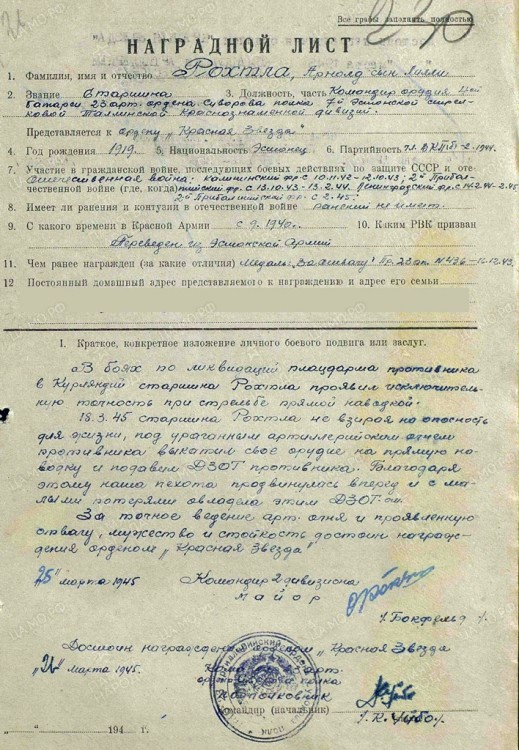 Все графы заполнять полностью
НАГРАДНОЙ ЛИСТ
1. Фамилия, имя и отчество Рохтла, Арнольд сын
2. Звание Старшина 3. Должность, часть Командир орудия
батареи, 23 арт. ордена Суворова полка 7й Эстонской стрел-
ковой Таллинской Краснознаменной дивизии.
Представляется к ордену „Красная Звезда"
4. Год рождения 1919. 5. Национальность Эстонец 6. Партийность
7. Участие в гражданской войне, последующих боевых действиях по защите СССР и оте-
чественной войне (где, когда) Отечественная война: Калининский фр. с 10.11.42 – 12.10.43; 2й Прибал-
тийский фр. с 13.10.43 – 13.2.44. Ленинградский фр. с 14.2.44 – 2.45
2й Прибалтийский фр. с 2.45.
8. Имеет ли ранения и контузии в отечественной войне ранений не имеет.
9. С какого времени в Красной Армии с 9.1940г. 10. Каким РВК призван
Переведен из Эстонской Армии
11. Чем ранее награжден (за какие отличия) Медаль „За отвагу" Пр. 23 ап. 16.12.43.
12 Постоянный домашний адрес представляемого к награждению и адрес его семьи
I. Краткое, конкретное изложение личного боевого подвига или заслуг.
В боях по ликвидаций плацдарма противника
в Курляндий старшина Рохтла проявил исключитель-
ную точность при стрельбе прямой наводкой.
18.3.45 старшина Рохтла не взирая на опасность
для жизни, под ураганным артиллерийским огнем
противника выкатил свое орудие на прямую на-
водку и подавил ДЗОТ противника. Благодаря
этому наша пехота продвинулась вперед и с ма-
лыми потерями овладела этим ДЗОТ-ом.
За точное ведение арт. огня и проявленную
отвагу, мужество и стойкость достоин награж-
дения орденом „Красная Звезда"
„25" марта 1945 Командир 2 дивизиона
майор
Достоин награждения орденом „Красная Звезда
марта 1945.
Подполковник
Командир (начальник)
„ " 194 г.